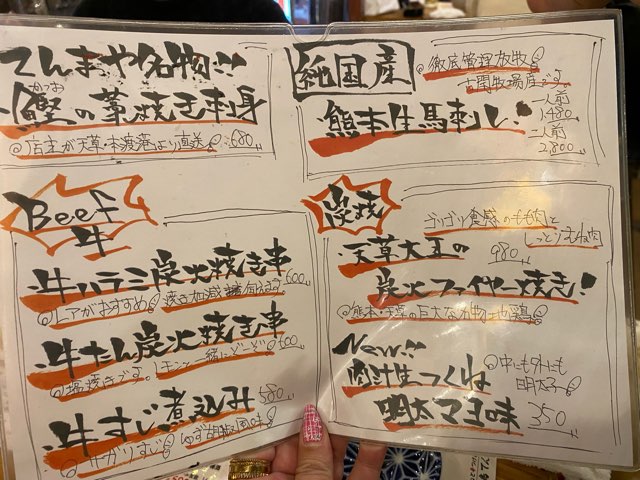 てんまや名物!!
かつお
・鰹の藁焼き刺身
◎店主が天草・本渡港より直送 680
Beef
牛
・牛ハラミ炭火焼き串 600
◎レアがおすすめ 焼き加減
・牛たん炭火焼き串 600
◎塩焼きです。レモンと一緒にどーぞ
・牛すじ煮込み 580
ゆず胡椒風味
純国産
◎徹底管理放牧
牧場産
熊本生馬刺し
一人前
1480
二人前
2800
炭焼
ゴリゴリ食感のもも肉と
しっとりむね肉
天草大王の 980
炭火ファイヤー焼き!
◎熊本・天草の巨大な名物地鶏
New!!
肉汁生つくね
明太マヨ味 350
◎中にも外にも
明太子